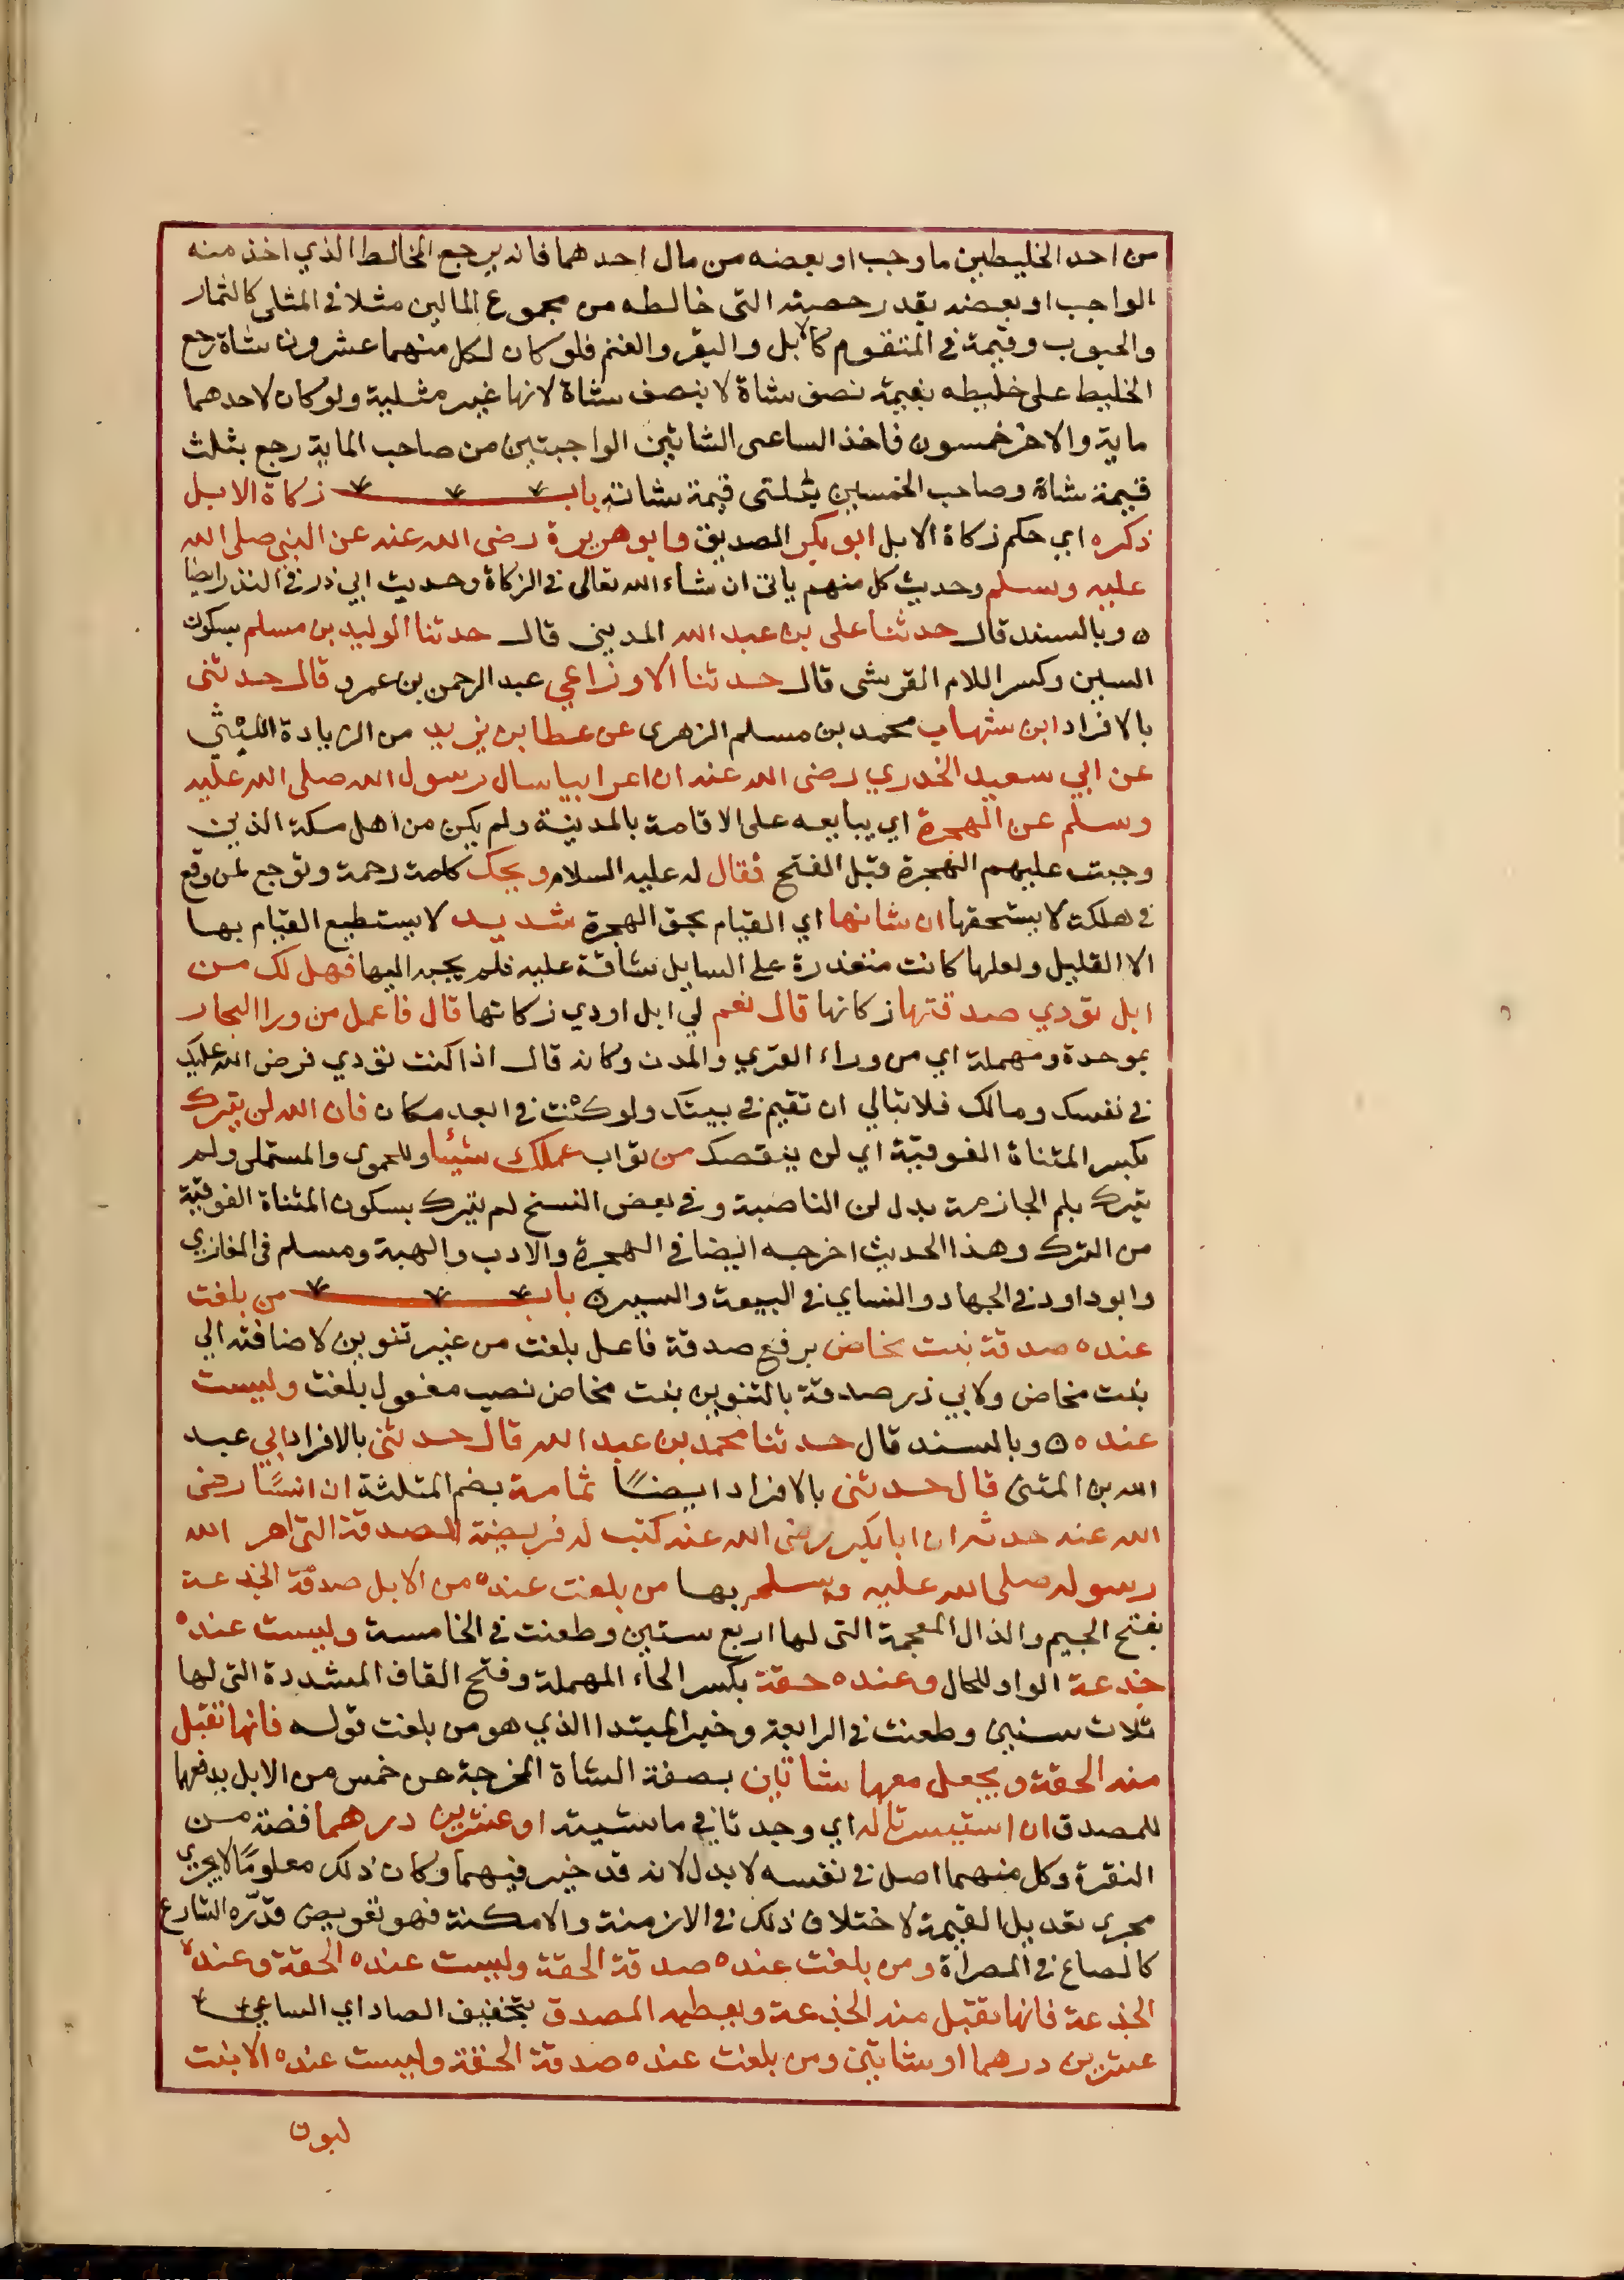 من احد الخليطين ما وجب او بعضه من مال احدهما فانه يرجع المخالط الذي اخذ منه
الواجب او بعضه بقدر حصته التى خالطه من مجموع المالين مثلا في المثلى كالثمار
والحبوب وقيمة في المتقوم كالابل والبقر والغنم فلو كان لكل منهما عشرون شاة رجع
الخليط على خليطه بقيمة نصف شاة لا بنصف شاة لانها غير مثلية ولو كان لاحدهما
ماية والاخر خمسون فاخذ الساعى الشاتين الواجبتين من صاحب الماية رجع بثلث
قيمة شاة وصاحب الخمسين بثلثى قيمة شاته باب زكاة الابل
ذكره اي حكم زكاة الابل ابو بكر الصديق وابو هريرة رضى الله عنه عن النبي صلى الله
عليه وسلم وحديث كل منهم ياتى ان شاء الله تعالى في الزكاة وحديث ابي ذر في النذر ايضا
ه وبالسند قال حدثنا على بن عبد الله المديني قال حدثنا الوليد بن مسلم بسكون
السين وكسر اللام القرشى قال حدثنا الاوزاعي عبد الرحمن بن عمرو قال حدثنى
بالافراد ابن شهاب محمد بن مسلم الزهرى عن عطا بن يزيد من الزيادة الليثي
عن ابي سعيد الخدري رضى الله عنه ان اعرابيا سال رسول الله صلى الله عليه
وسلم عن الهجرة اي يبايعه على الاقامة بالمدينة ولم يكن من اهل مكة الذين
وجبت عليهم الهجرة قبل الفتح فقال له عليه السلام ويحك كلمة رحمة وتوجع لمن وقع
في هلكة لا يستحقها ان شانها اي القيام بحق الهجرة شديد لا يستطيع القيام بها
الا القليل ولعلها كانت متعذرة على السايل شاقة عليه فلم يجبه اليها فهل لك من
ابل تودي صدقتها زكاتها قال نعم لي ابل اودي زكاتها قال فاعمل من ورا البحار
بموحدة ومهملة اي من وراء القري والمدن وكانه قال اذا كنت تودي فرض الله عليك
في نفسك ومالك فلا تبالي ان تقيم في بيتك ولو كنت في ابعد مكان فان الله لن يترك
بكسر المثناة الفوقية اي لن ينقصك من ثواب عملك شيئا وللحموى والمستملى ولم
يترك بلم الجازمة بدل لن الناصبة وفي بعض النسخ لم يترك بسكون المثناة الفوقية
من الترك وهذا الحديث اخرجه ايضا في الهجرة والادب والهبة ومسلم في المغازي
وابو داود في الجهاد والنساي في البيعة والسير ه باب من بلغت
عنده صدقة بنت مخاض برفع صدقة فاعل بلغت من غير تنوين لاضافته الي
بنت مخاض ولابي ذر صدقة بالتنوين بنت مخاض نصب مفعول بلغت وليست
عنده ه وبالسند قال حدثنا محمد بن عبد الله قال حدثنى بالافراد ابي عبد
الله بن المثنى قال حدثنى بالافراد ايضًا ثمامة بضم المثلثة ان انسًا رضى
الله عنه حدثه ان ابا بكر رضى الله عنه كتب له فريضة الصدقة التى امر الله
رسوله صلى الله عليه وسلم بها من بلغت عنده من الابل صدقة الجذعة
بفتح الجيم والذال المعجمة التى لها اربع سنين وطعنت في الخامسة وليست عنده
جذعة الواو للحال وعنده حقة بكسر الحاء المهملة وفتح القاف المشددة التى لها
ثلاث سنين وطعنت في الرابعة وخبر المبتدا الذي هو من بلغت قوله فانها تقبل
منه الحقة ويجعل معها شاتين بصفة الشاة المخرجة عن خمس من الابل يدفعها
للمصدق ان استيسرتا له اي وجدتا في ماشيته او عشرين درهما فضة من
النقرة وكل منهما اصل في نفسه لا بدل لانه قد خير فيهما وكان ذلك معلومًا لا يجري
مجرى تعديل القيمة لاختلاف ذلك في الازمنة والامكنة فهو تعويض قدّره الشارع
كالصاع في المصراة ومن بلغت عنده صدقة الحقة وليست عنده الحقة وعنده
الجذعة فانها تقبل منه الجذعة ويعطيه المصدق بتخفيف الصاد اي الساعي
عشرين درهما او شاتين ومن بلغت عنده صدقة الحقة وليست عنده الا بنت
لبون